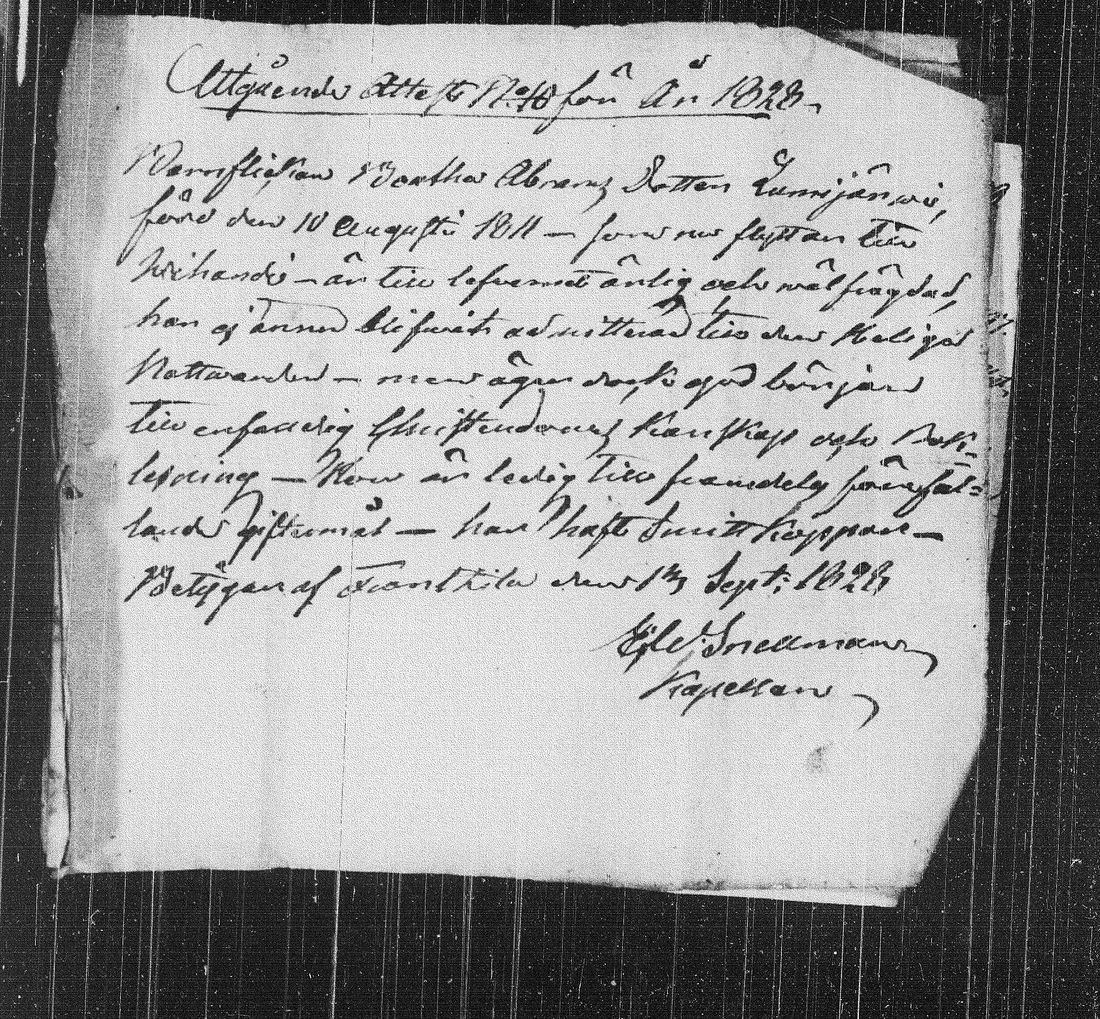 Utgående Attest No 18 för År 1828.
Barnflickan Beatha Abrams Dotter Lumijärwi,
född den 10 Augusti 1811 – som nu flyttar till
Wihandi – är till lefvernet ärlig och wälfrägdad,
har ej ännu blifwit admitterad till den Heliga
Nattwarden – men äger dock god början
till enfaldig Christendoms Kunskap och Bok-
läsning – Hon är ledig till framdeles förefal=
lande giftermål – har haft Smittkoppor –
Betygar af Frantsila den 13 Sept: 1828
Snellman
Kapellan